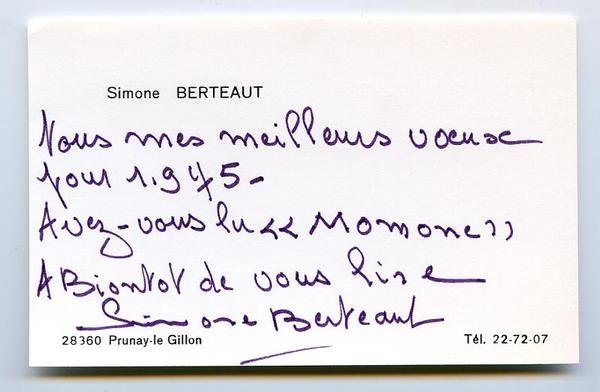 Simone BERTEAUT
Tous mes meilleurs voeux
pour 1.975-
Avez-vous lu << Momone >>
A Biontot de vous lire
Simone Berteaut
28360 Prunay-le Gillon
Tél. 22-72-07